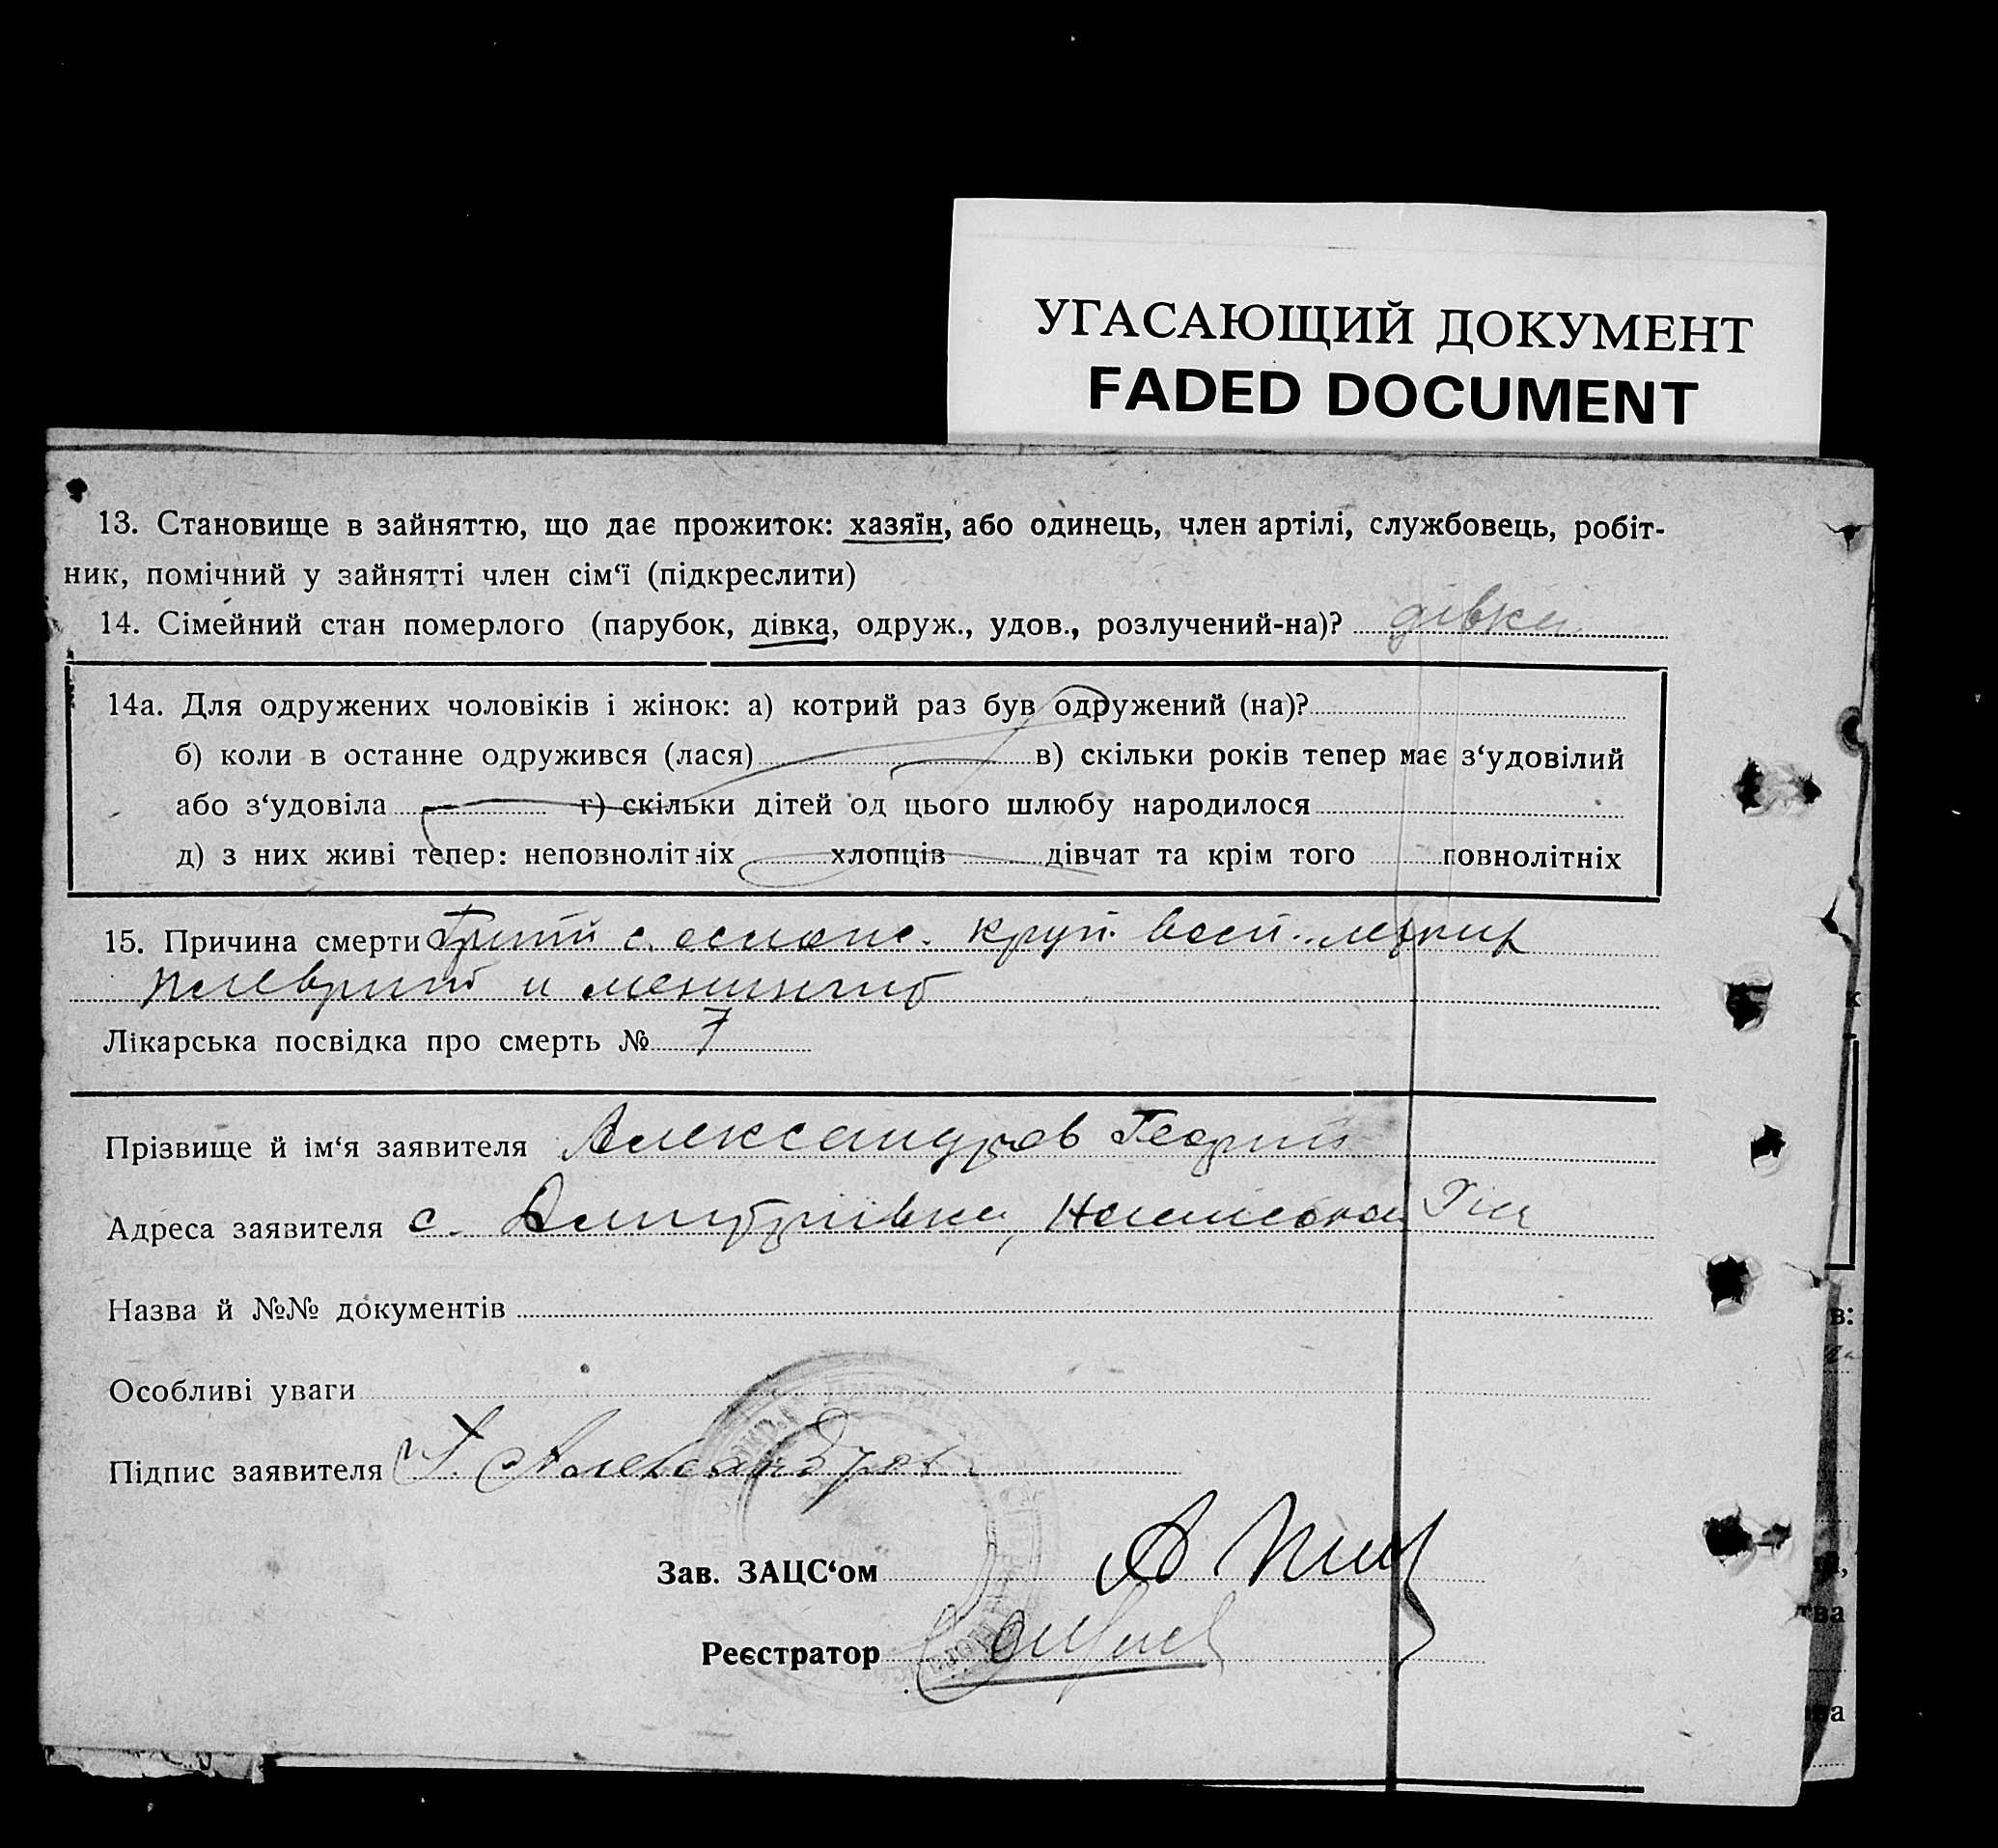 УГАСАЮЩИЙ ДОКУМЕНТ
FADED DOCUMENT
13. Становище в зайняттю, що дає прожиток: хазяїн, або одинець, член артілі, службовець, робіт-
ник, помічний у зайнятті член сім‘ї (підкреслити)
14. Сімейний стан померлого (парубок, дівка, одруж., удов., розлучений-на)? дівка
14а. Для одружених чоловіків і жінок: а) котрий раз був одружений (на)?
б) коли в останне одружився (лася) в) скільки років тепер має з‘удовілий
або з‘удовіла г) скільки дітей од цього шлюбу народилося
д) з них живі тепер: неповнолітніх хлопців дівчат та крім того повнолітніх
15. Причина смерти Грипп с ослож. круп. восп. легких
плеврит и менингит
Лікарська посвідка про смерть № 7
Прізвище й ім‘я заявителя Александров Георгий
Адреса заявителя с. Дмитрівка,
Назва й №№ документів
Особливі уваги
Підпис заявителя Г. Александров
Зав. ЗАЦС‘ом
Реєстратор
в:
тва
ва